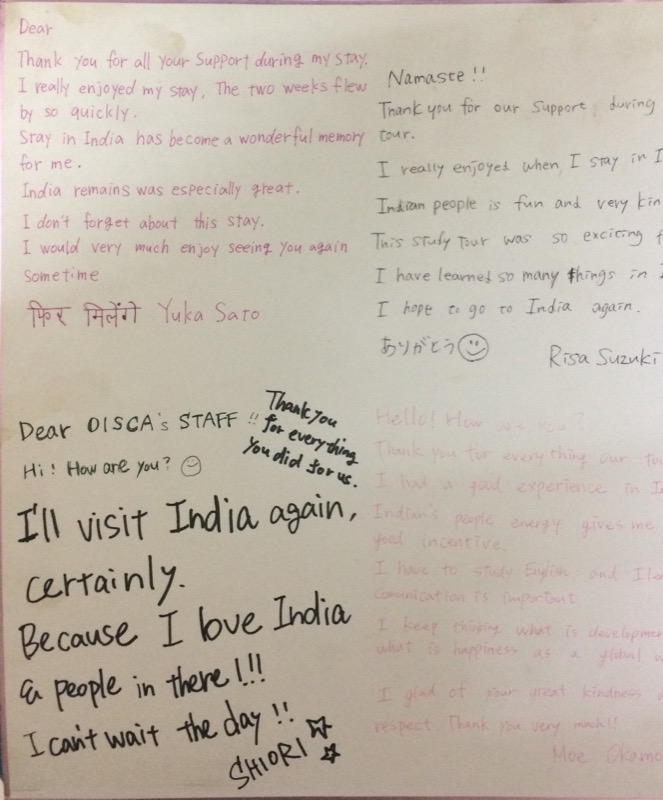 Dear
Thank you for all your support during my stay.
I really enjoyed my stay. The two weeks flew
by so quickly.
Stay in India has become a wonderful memory
for me.
India remains was especially great.
I don't forget about this stay.
I would very much enjoy seeing you again
sometime
फिर मिलेंगे Yuka Sato
Namaste !!
Thank you for our support during
tour.
I really enjoyed when I stay in
Indian people is fun and very
This study tour was so exciting
I have learned so many things in
I hope to go to India again.
ありがとう
Risa Suzuki
Dear OISCA's STAFF !!
Thank you
for everything
you did for us.
Hi! How are you?
I'll visit India again,
certainly.
Because I love India
& people in there!!!
I can't wait the day !!
SHIORI
Hello! How are you?
Thank you for everything our
I had a good experience in
Indian's people energy gives me
good incentive.
I have to study English and
comunication is important
I keep thinking what is
what is happiness as a global
I glad of your great kindness
respect. Thank you very much!!
Moe